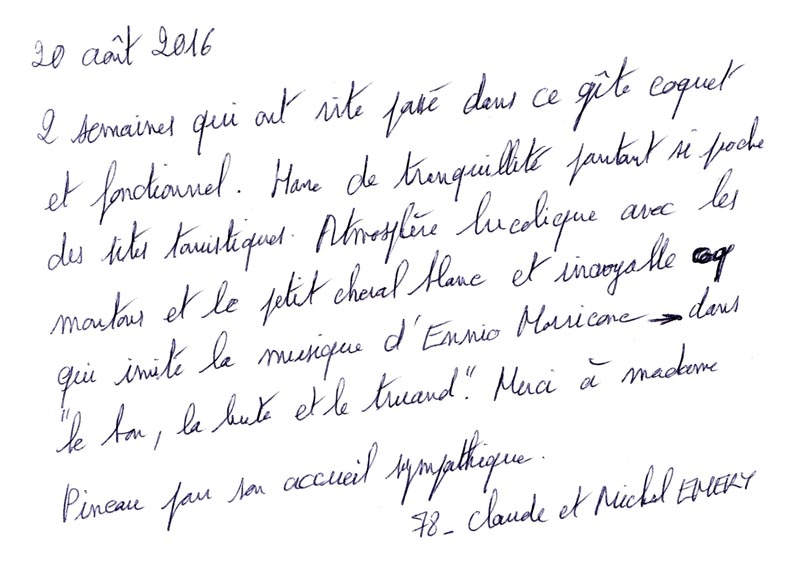 20 août 2016
2 semaines qui ont vite passé dans ce gîte coquet
et fonctionnel. Havre de tranquillité pourtant si proche
des sites touristiques. Atmosphère bucolique avec les
moutons et le petit cheval blanc et incroyable coq
qui imite la musique d'Ennio Morricone → dans
"le bon, la brute et le truand". Merci à madame
Pineau pour son accueil sympathique.
78_ Claude et Michel EMERY